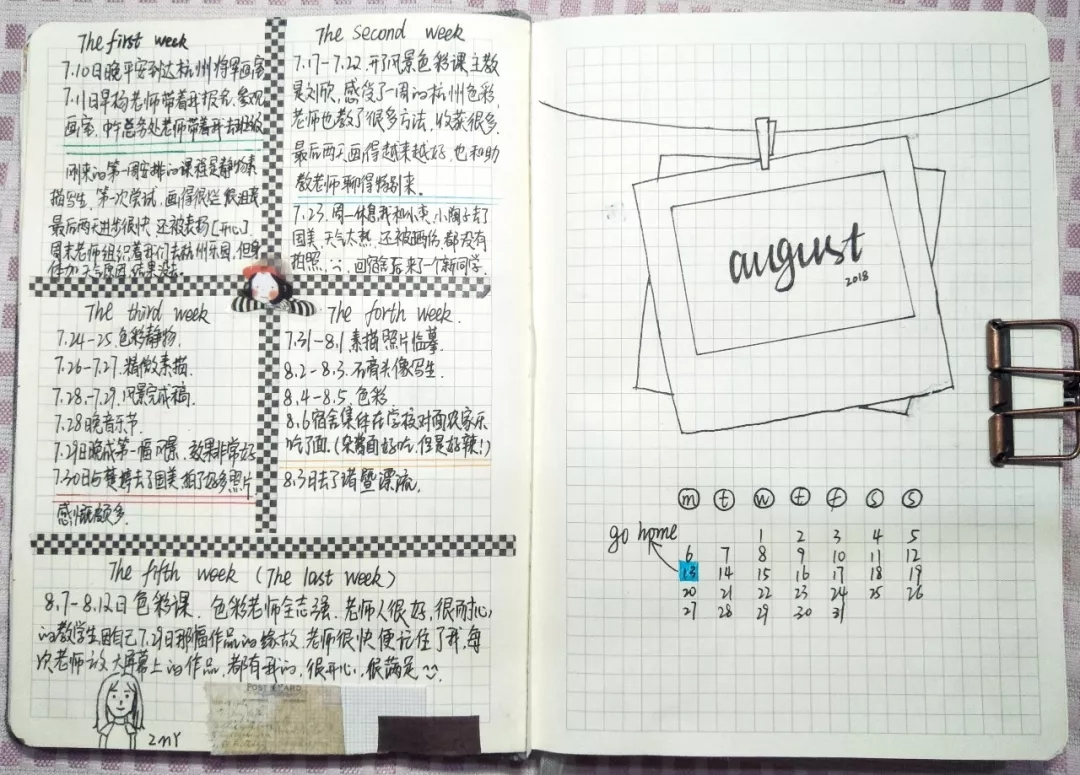 The first week
7.10日晚平安到达杭州将军画室
7.11日早杨老师带着我报名,参观
画室,中午总务处老师带着我去班级
刚来的第一周安排的课程是静物素
描写生,第一次尝试,画得很烂,很沮丧,
最后两天进步很快,还被表扬[开心].
周末老师组织着我们去杭州乐园,但身
体加天气原因,结果没去.
The second week
7.17-7.22.开了风景色彩课,主教
是刘欣,感受了一周的杭州色彩,
老师也教了很多方法,收获很多.
最后两天画得越来越好,也和助
教老师聊得特别来.
7.23.周一休息,我和小英,小陶子去了
国美,天气太热,还被晒伤,都没有
拍照,回宿舍后来了一个新同学.
The third week
7.24-25.色彩静物.
7.26-7.27.精微素描.
7.28-7.29.风景完成稿.
7.28晚音乐节.
7.29日晚成第一幅风景,效果非常好
7.30日与楚婷去了国美,拍了好多照片
感慨颇多.
The forth week.
7.31-8.1.素描照片临摹.
8.2-8.3.石膏头像写生.
8.4-8.5.色彩.
8.6宿舍集体在学校对面农家乐
吃了面.(杂酱面好吃,但是好辣!)
8.3日去了诸暨漂流.
The fifth week (The last week)
8.7-8.12日色彩课.色彩老师全志强.老师人很好,很耐心
的教学生,因自己7.29日那幅作品的缘故,老师很快便记住了我,每
次老师放大屏幕上的作品,都有我的,很开心,很满足
ZMY
POST CARD
august
2018
m t w t f s s
go home
1 2 3 4 5
6 7 8 9 10 11 12
13 14 15 16 17 18 19
20 21 22 23 24 25 26
27 28 29 30 31